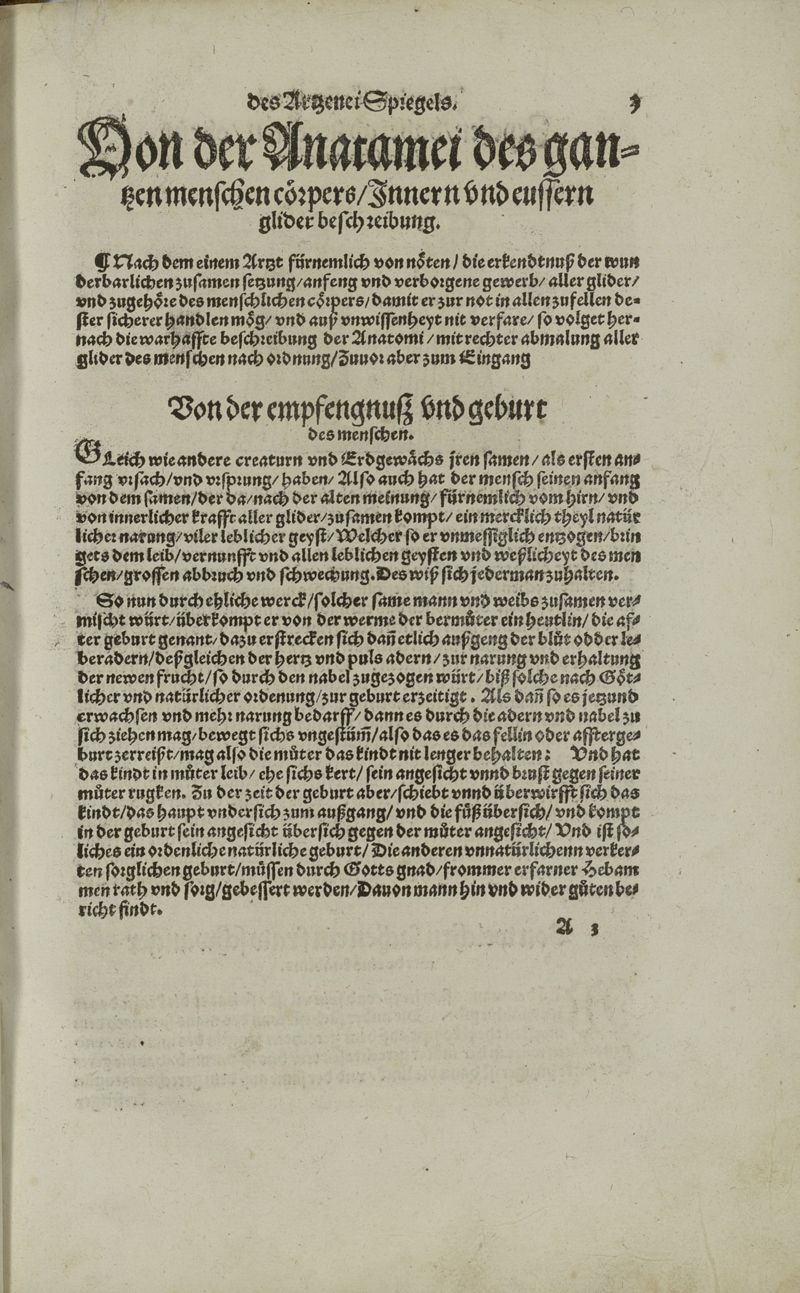 des Artzenei Spiegels. 3
Von der Anatamei des gan-
tzen menschen cörpers/Innern vnd eussern
glider beschreibung.
¶ Nach dem einem Artzt fürnemlich von nöten/ die erkendtnuß der wun
derbarlichen zusamen setzung/anfeng vnd verborgene gewerb/ aller glider/
vnd zugehöre des menschlichen cörpers/damit er zur not in allen zufellen de-
ster sicherer handlen mög/ vnd auß vnwissenheyt nit verfare/ so volget her-
nach die warhaffte beschreibung der Anatomi/ mit rechter abmalung aller
glider des menschen nach ordnung/Zuuor aber zum Eingang
Von der empfengnuß vnd geburt
des menschen.
GLeich wie andere creaturn vnd Erdgewächs jren samen/ als ersten an-
fang vrsach/vnd vrsprung/haben/ Also auch hat der mensch seinen anfang
von dem samen/der da/nach der alten meinung/ fürnemlich vom hirn/ vnd
von innerlicher krafft aller glider/zusamen kompt/ ein mercklich theyl natür
licher narung/viler leblicher geyst/Welcher so er vnmessiglich entzogen/brin
gets dem leib/vernunfft vnd allen leblichen geysten vnd weßlicheyt des men
schen/grossen abbruch vnd schwechung. Des wiß sich jederman zuhalten.
So nun durch ehliche werck/solcher same mann vnd weibs zusamen ver-
mischt würt/überkompt er von der werme der bermůter ein heutlin/ die af-
ter geburt genant/dazu erstrecken sich dañ etlich außgeng der blůt od der le-
beradern/deßgleichen der hertz vnd puls adern/zur narung vnd erhaltung
der newen frucht/so durch den nabel zugezogen würt/biß solche nach Göt-
licher vnd natürlicher ordenung/zur geburt erzeitigt. Als dañ so es jetzund
erwachsen vnd mehr narung bedarff/dann es durch die adern vnd nabel zu
sich ziehen mag/bewegt sichs vngestüm̃/also das es das fellin oder affterge-
burt zerreißt/mag also die můter das kindt nit lenger behalten: Vnd hat
das kindt in můter leib/ ehe sichs kert/ sein angesicht vnnd brust gegen seiner
můter rugken. Zu der zeit der geburt aber/schiebt vnnd überwirfft sich das
kindt/das haupt vndersich zum außgang/vnd die füß übersich/vnd kompt
in der geburt sein angesicht übersich gegen der můter angesicht/ Vnd ist so-
liches ein ordenliche natürliche geburt/ Die anderen vnnatürlichenn verker-
ten sorglichen geburt/müssen durch Gotts gnad/frommer erfarner Hebam
men rath vnd sorg/gebessert werden/Dauon mann hin vnd wider gůten be-
richt findt.
A 3